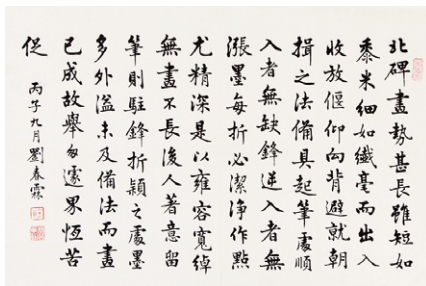 北碑畫勢甚長雖短如
黍米細如纖毫而出入
收放偃仰向背避就朝
揖之法備具起筆處順
入者無缺鋒逆入者無
漲墨每折必潔淨作點
尤精深是以雍容寬綽
無畫不長後人著意留
筆則駐鋒折穎之處墨
多外溢未及備法而畫
已成故舉匆遽果恆苦
促
丙子九月劉春霖